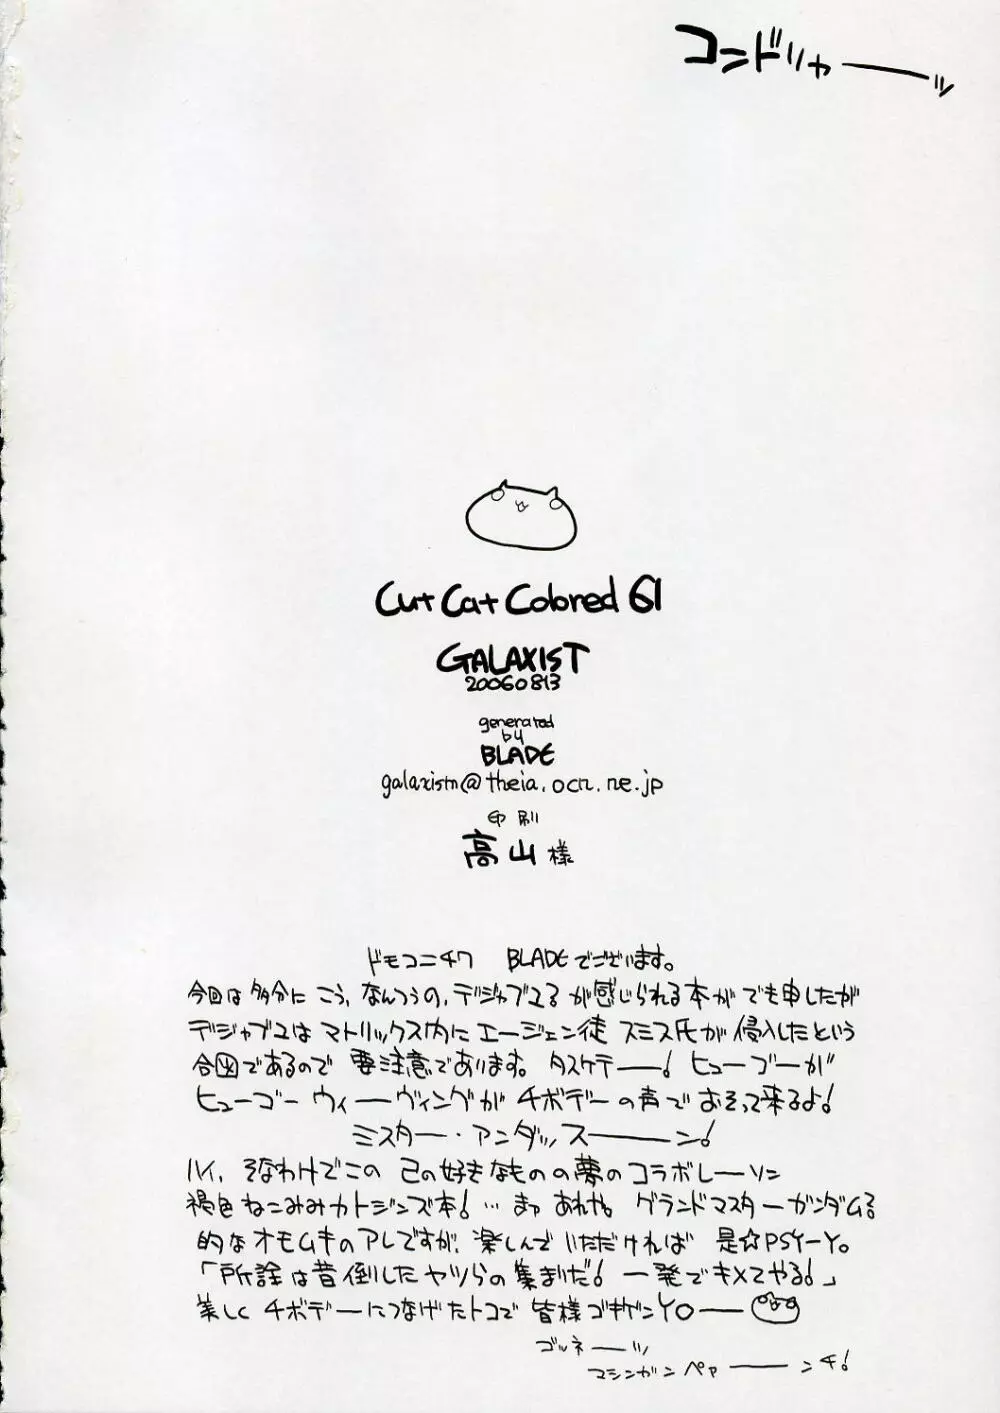 コンドリャーーッ
Cut Cat Colored 61
GALAXIST
20060813
generated
by
BLADE
galaxistn@theia.ocn.ne.jp
印刷
高山 様
ドモコニチワ BLADEでございます。
今回は多分に こう、なんつうの、デジャブユる が感じられる本がでも申したが
デジャブユは マトリックス内に エージェン徒 スミス氏が 侵入したという
合図であるので 要注意であります。タスケテーー! ヒューゴーが
ヒューゴー ウィーーヴィングが チボデーの声で おそって来るよ!
ミスター・アンダッスーーン!
ハイ、そなわけでこの 己の好きなものの夢のコラボレーソン
褐色ねこみみカトジンズ本! … まァ あれや。グランドマスターガンダムる
的なオモムキのアレですが、楽しんで いただければ 是☆PSY-Y。
「所詮は昔倒したヤツらの集まりだ! 一発でキメてやる!」
美しく チボデーにつなげたトコで 皆様ゴキゲンYOー
ゴルネーーッ
マシンガンペァーーンチ!